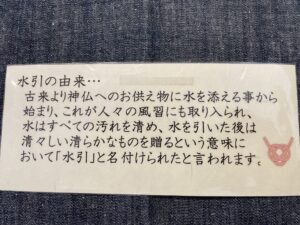 水引の由来…
古来より神仏へのお供え物に水を添える事から
始まり、これが人々の風習にも取り入れられ、
水はすべての汚れを清め、水を引いた後は
清々しい清らかなものを贈るという意味に
おいて「水引」と名付けられたと言われます。